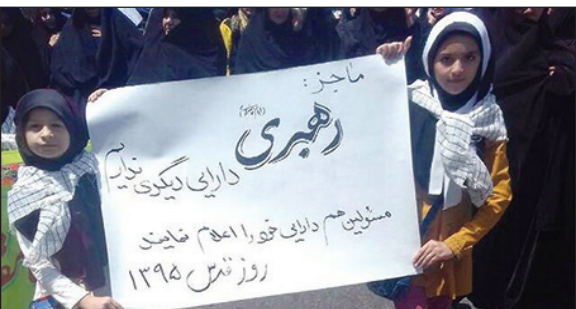 ما جز:
رهبری
دارایی دیگری نداریم
مسئولین هم دارایی خود را اعلام نمایند
روز قدس ۱۳۹۵